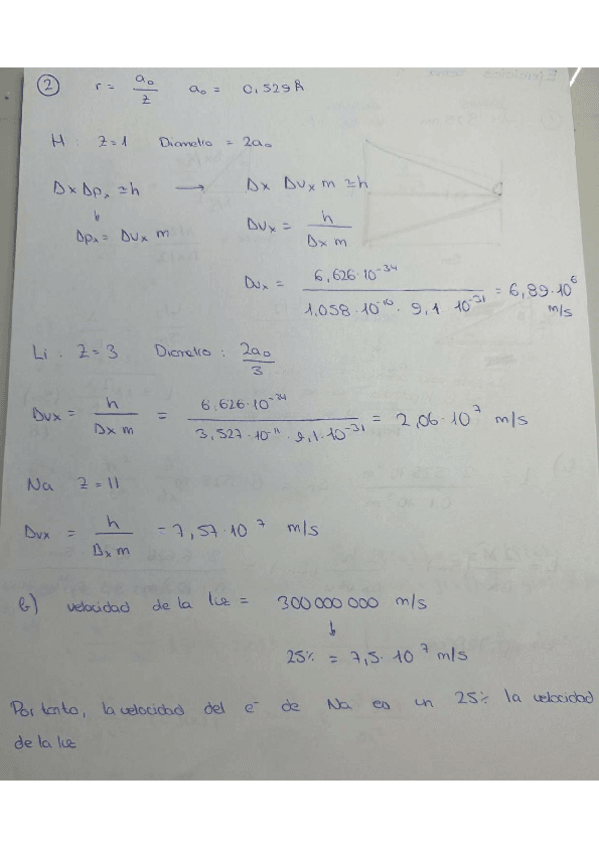 ② r = a₀/z a₀ = 0,529 Å
H : Z=1 Diametro = 2a₀
Δx Δpₓ ≃ h → Δx Δvₓ m ≃ h
↓
Δpₓ = Δvₓ m Δvₓ = h / Δx m
Δvₓ = 6,626·10⁻³⁴ / 1.058·10⁻¹⁰ · 9,1·10⁻³¹ = 6,89·10⁶ m/s
Li : Z=3 Diametro : 2a₀/3
Δvx = h / Δx m = 6,626·10⁻³⁴ / 3,527·10⁻¹¹ · 9,1·10⁻³¹ = 2,06·10⁷ m/s
Na Z=11
Δvx = h / Δx m = 7,57·10⁷ m/s
b) velocidad de la luz = 300 000 000 m/s
↓
25% = 7,5·10⁷ m/s
Por tanto, la velocidad del e⁻ de Na es un 25% la velocidad
de la luz